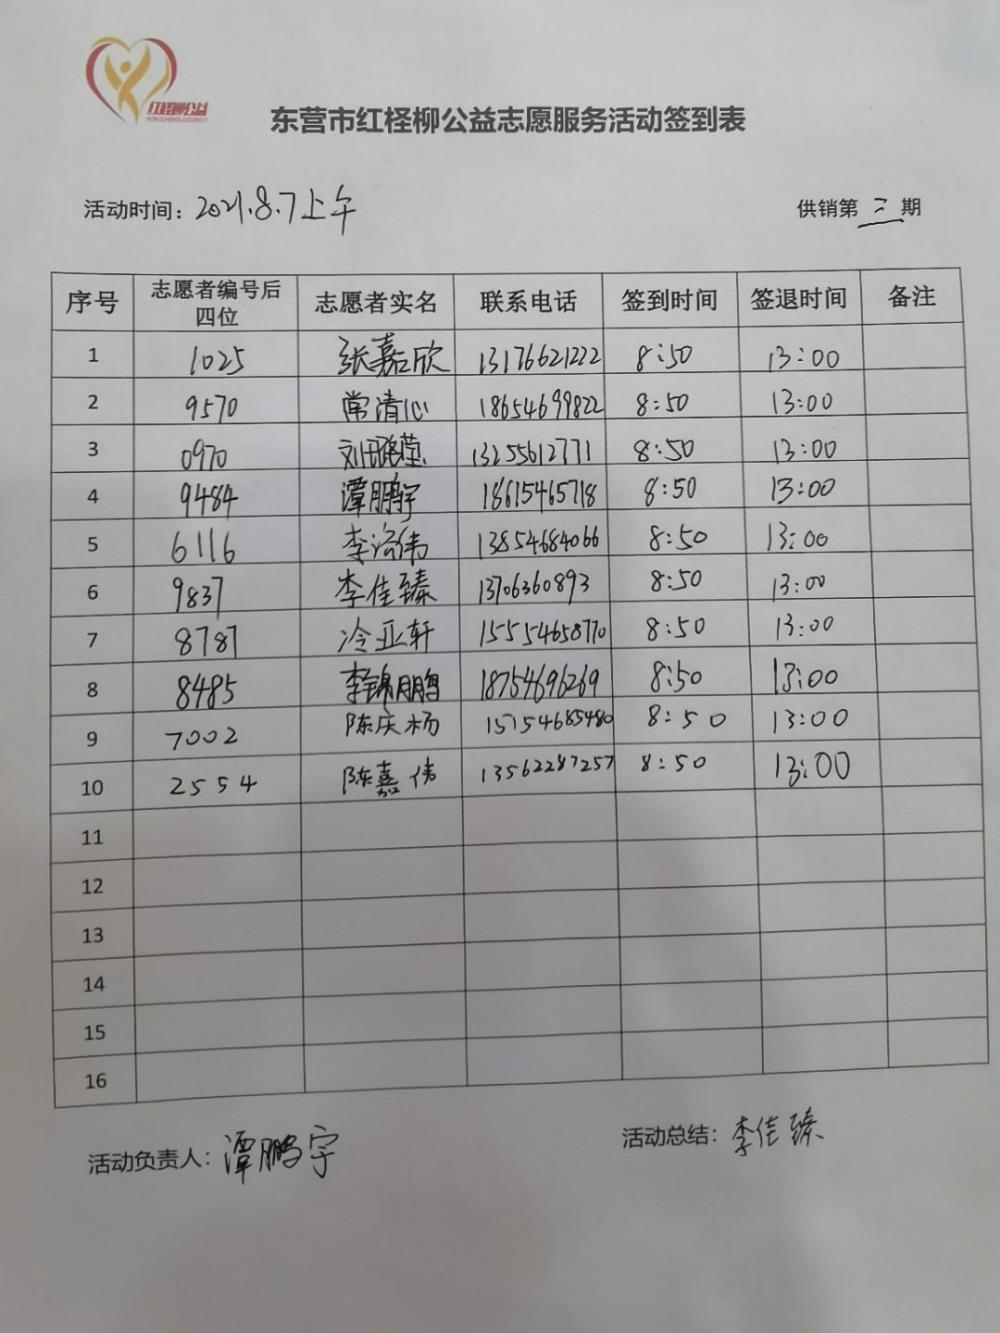 红柽柳公益
东营市红柽柳公益志愿服务活动签到表
活动时间：2021.8.7上午 供销第三期
序号 志愿者编号后四位 志愿者实名 联系电话 签到时间 签退时间 备注
1 1025 张嘉欣 13176621222 8:50 13:00
2 9570 常清心 18654699822 8:50 13:00
3 0970 刘璐莹 13255612771 8:50 13:00
4 9484 潭鹏宇 18615465718 8:50 13:00
5 6116 李伟 13854684066 8:50 13:00
6 9837 李佳臻 13706360893 8:50 13:00
7 8787 冷亚轩 15554658770 8:50 13:00
8 8485 李锦鹏 18754696269 8:50 13:00
9 7002 陈庆杨 15154685480 8:50 13:00
10 2554 陈嘉伟 13562287257 8:50 13:00
11
12
13
14
15
16
活动负责人：潭鹏宇 活动总结：李佳臻